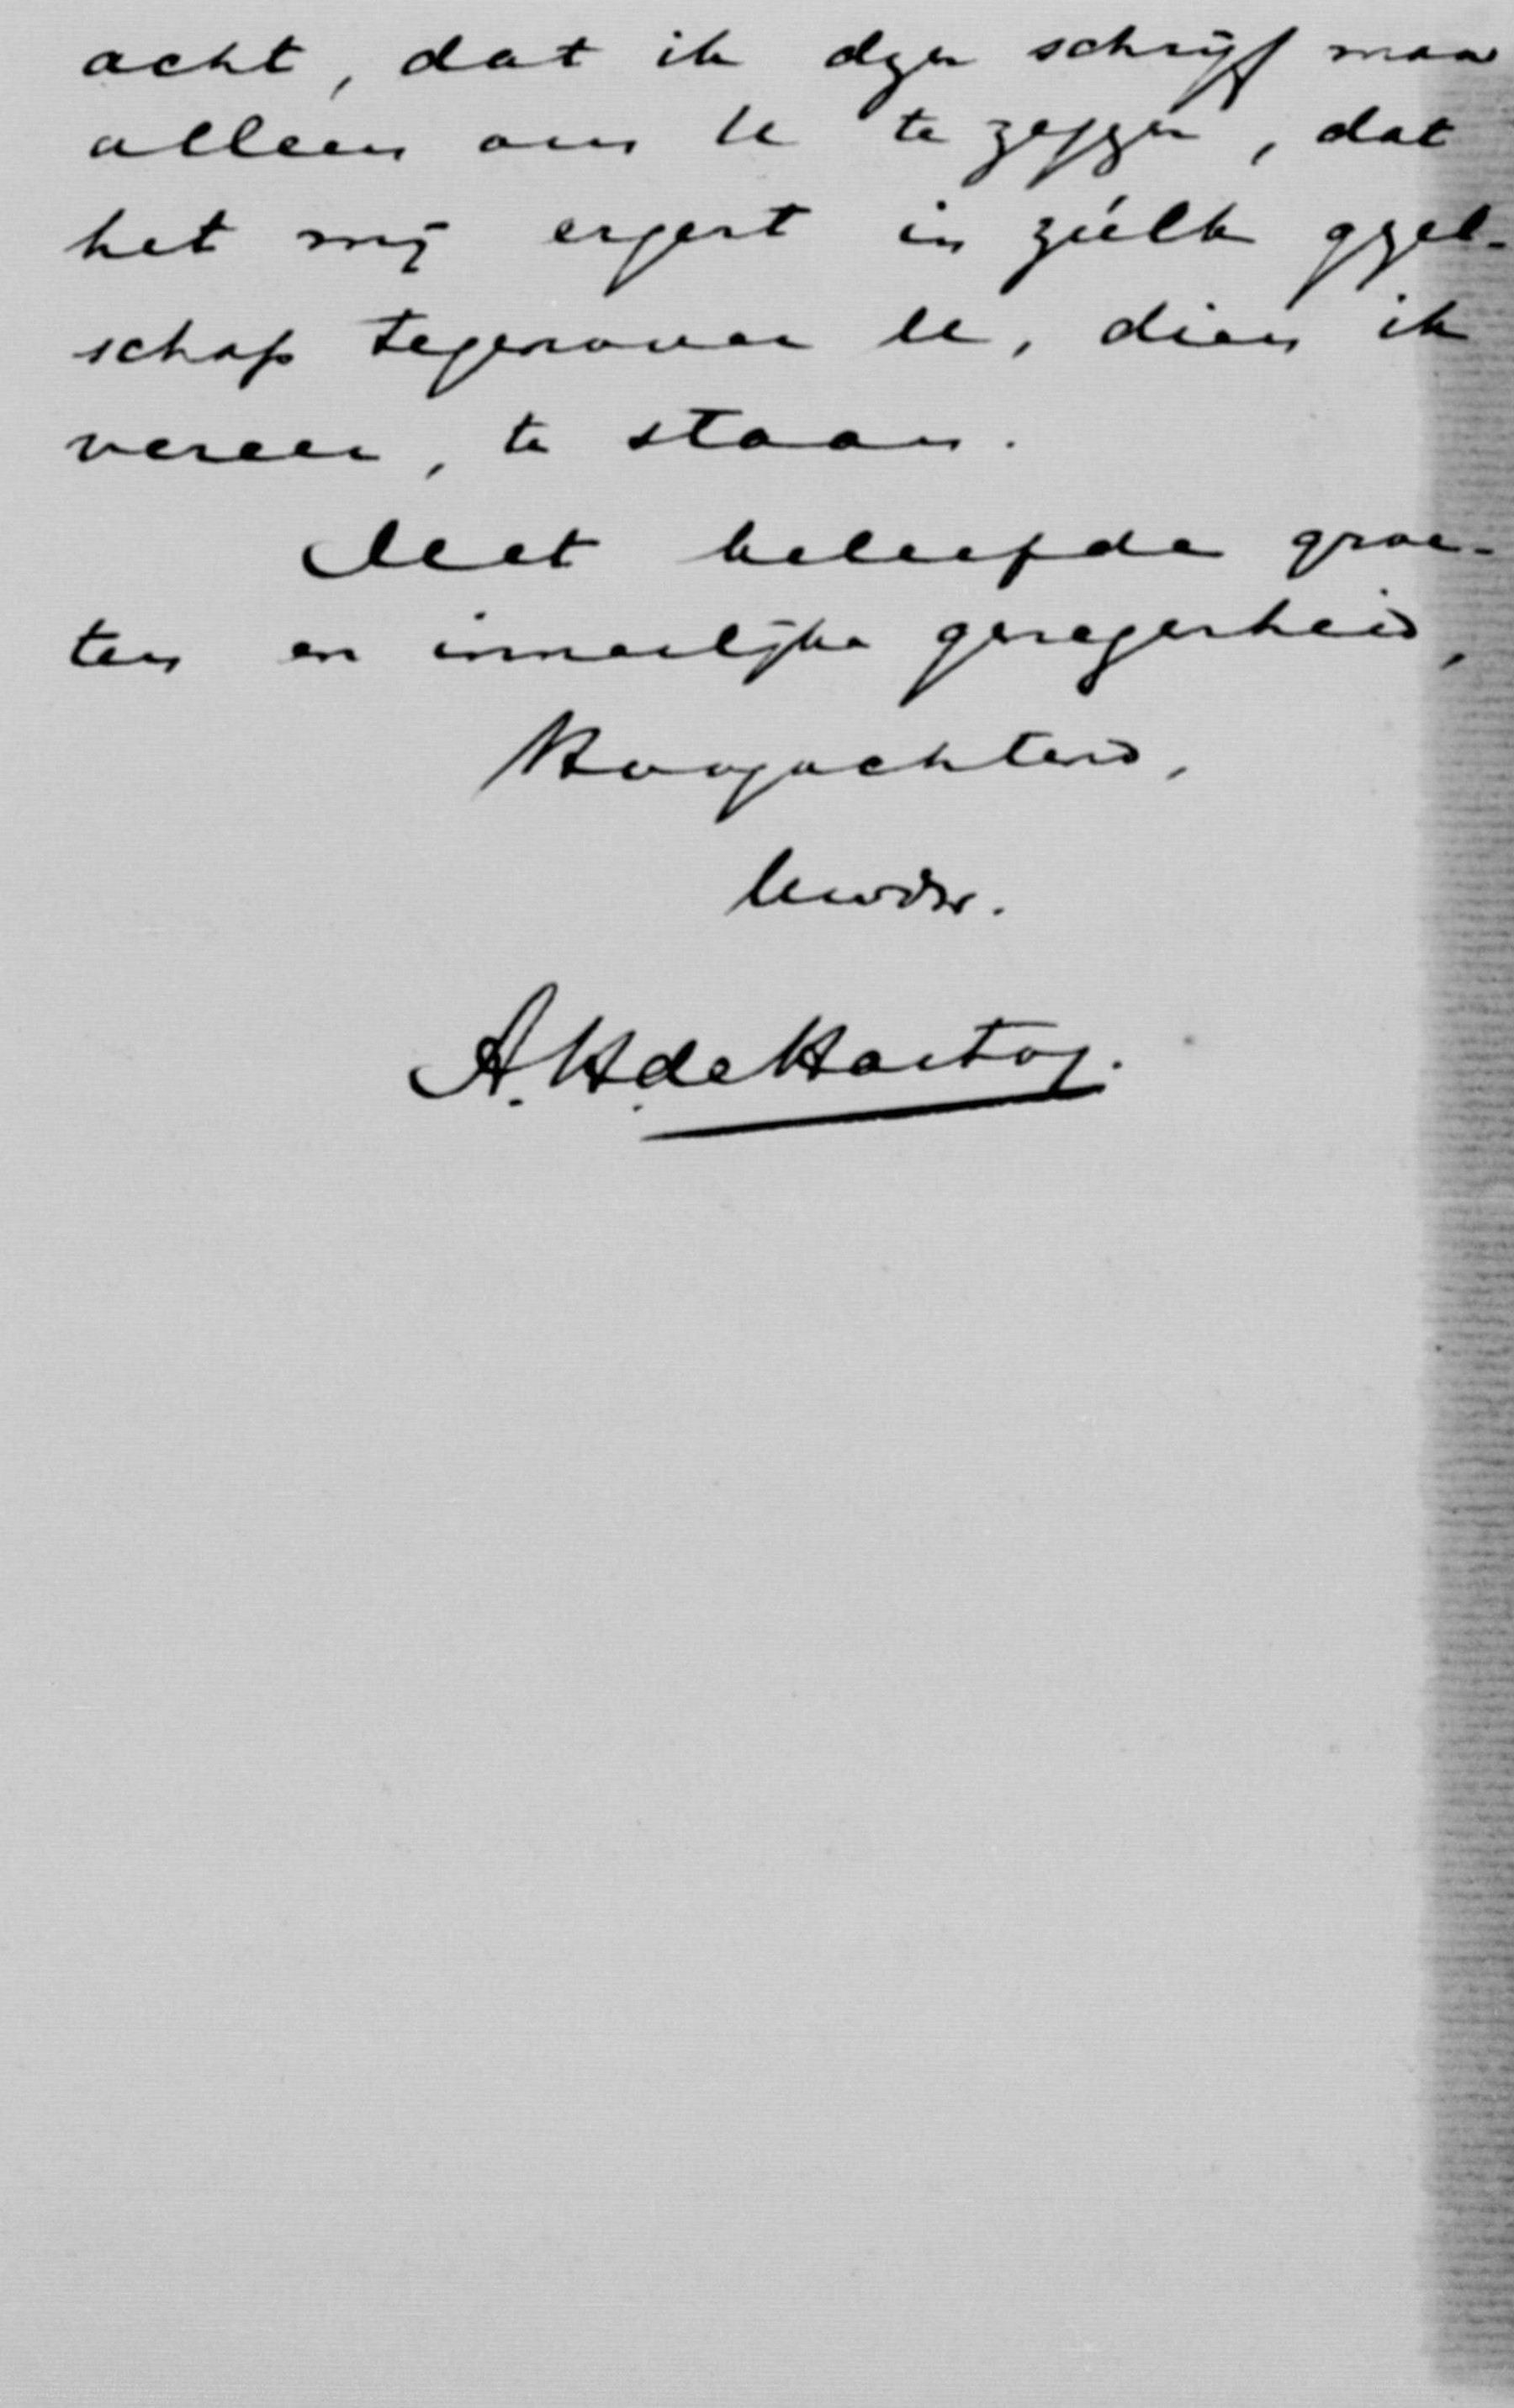 acht, dat ik dezen schrijf maar
alleen om U te zeggen, dat
het mij ergert in zúlk gezel-
schap tegenover U, dien ik
vereer, te staan.
Met beleefde groe-
ten en innerlijke genegenheid,
Hoogachtend,
Uwdw.
A. H. de Hartog.